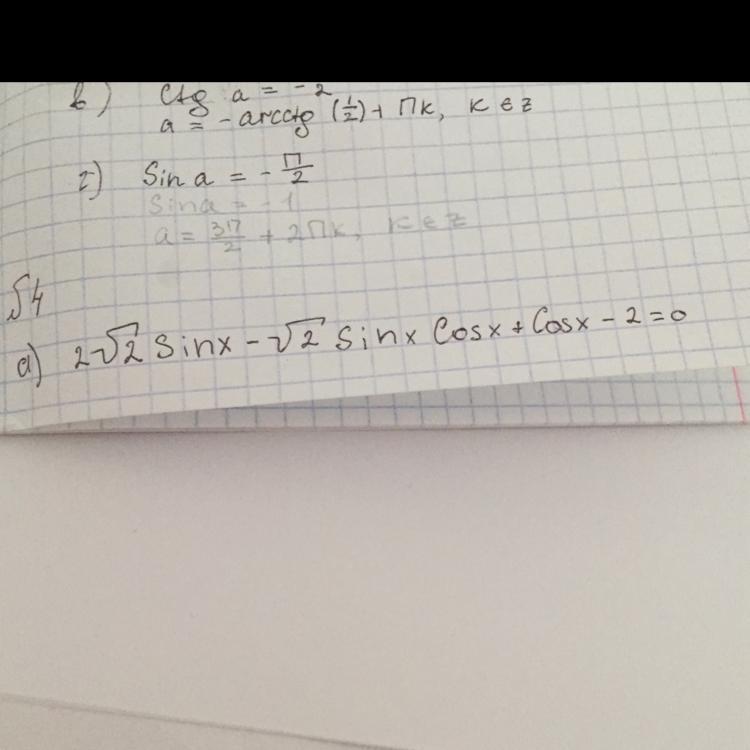 в) Ctg a = -2
a = -arcctg (1/2) + Πk, k ∈ z
г) Sin a = - Π/2
Sin a = -1
a = 3Π/2 + 2Πk, k ∈ z
√4
а) 2√2 Sinx - √2 Sinx Cosx + Cosx - 2 = 0